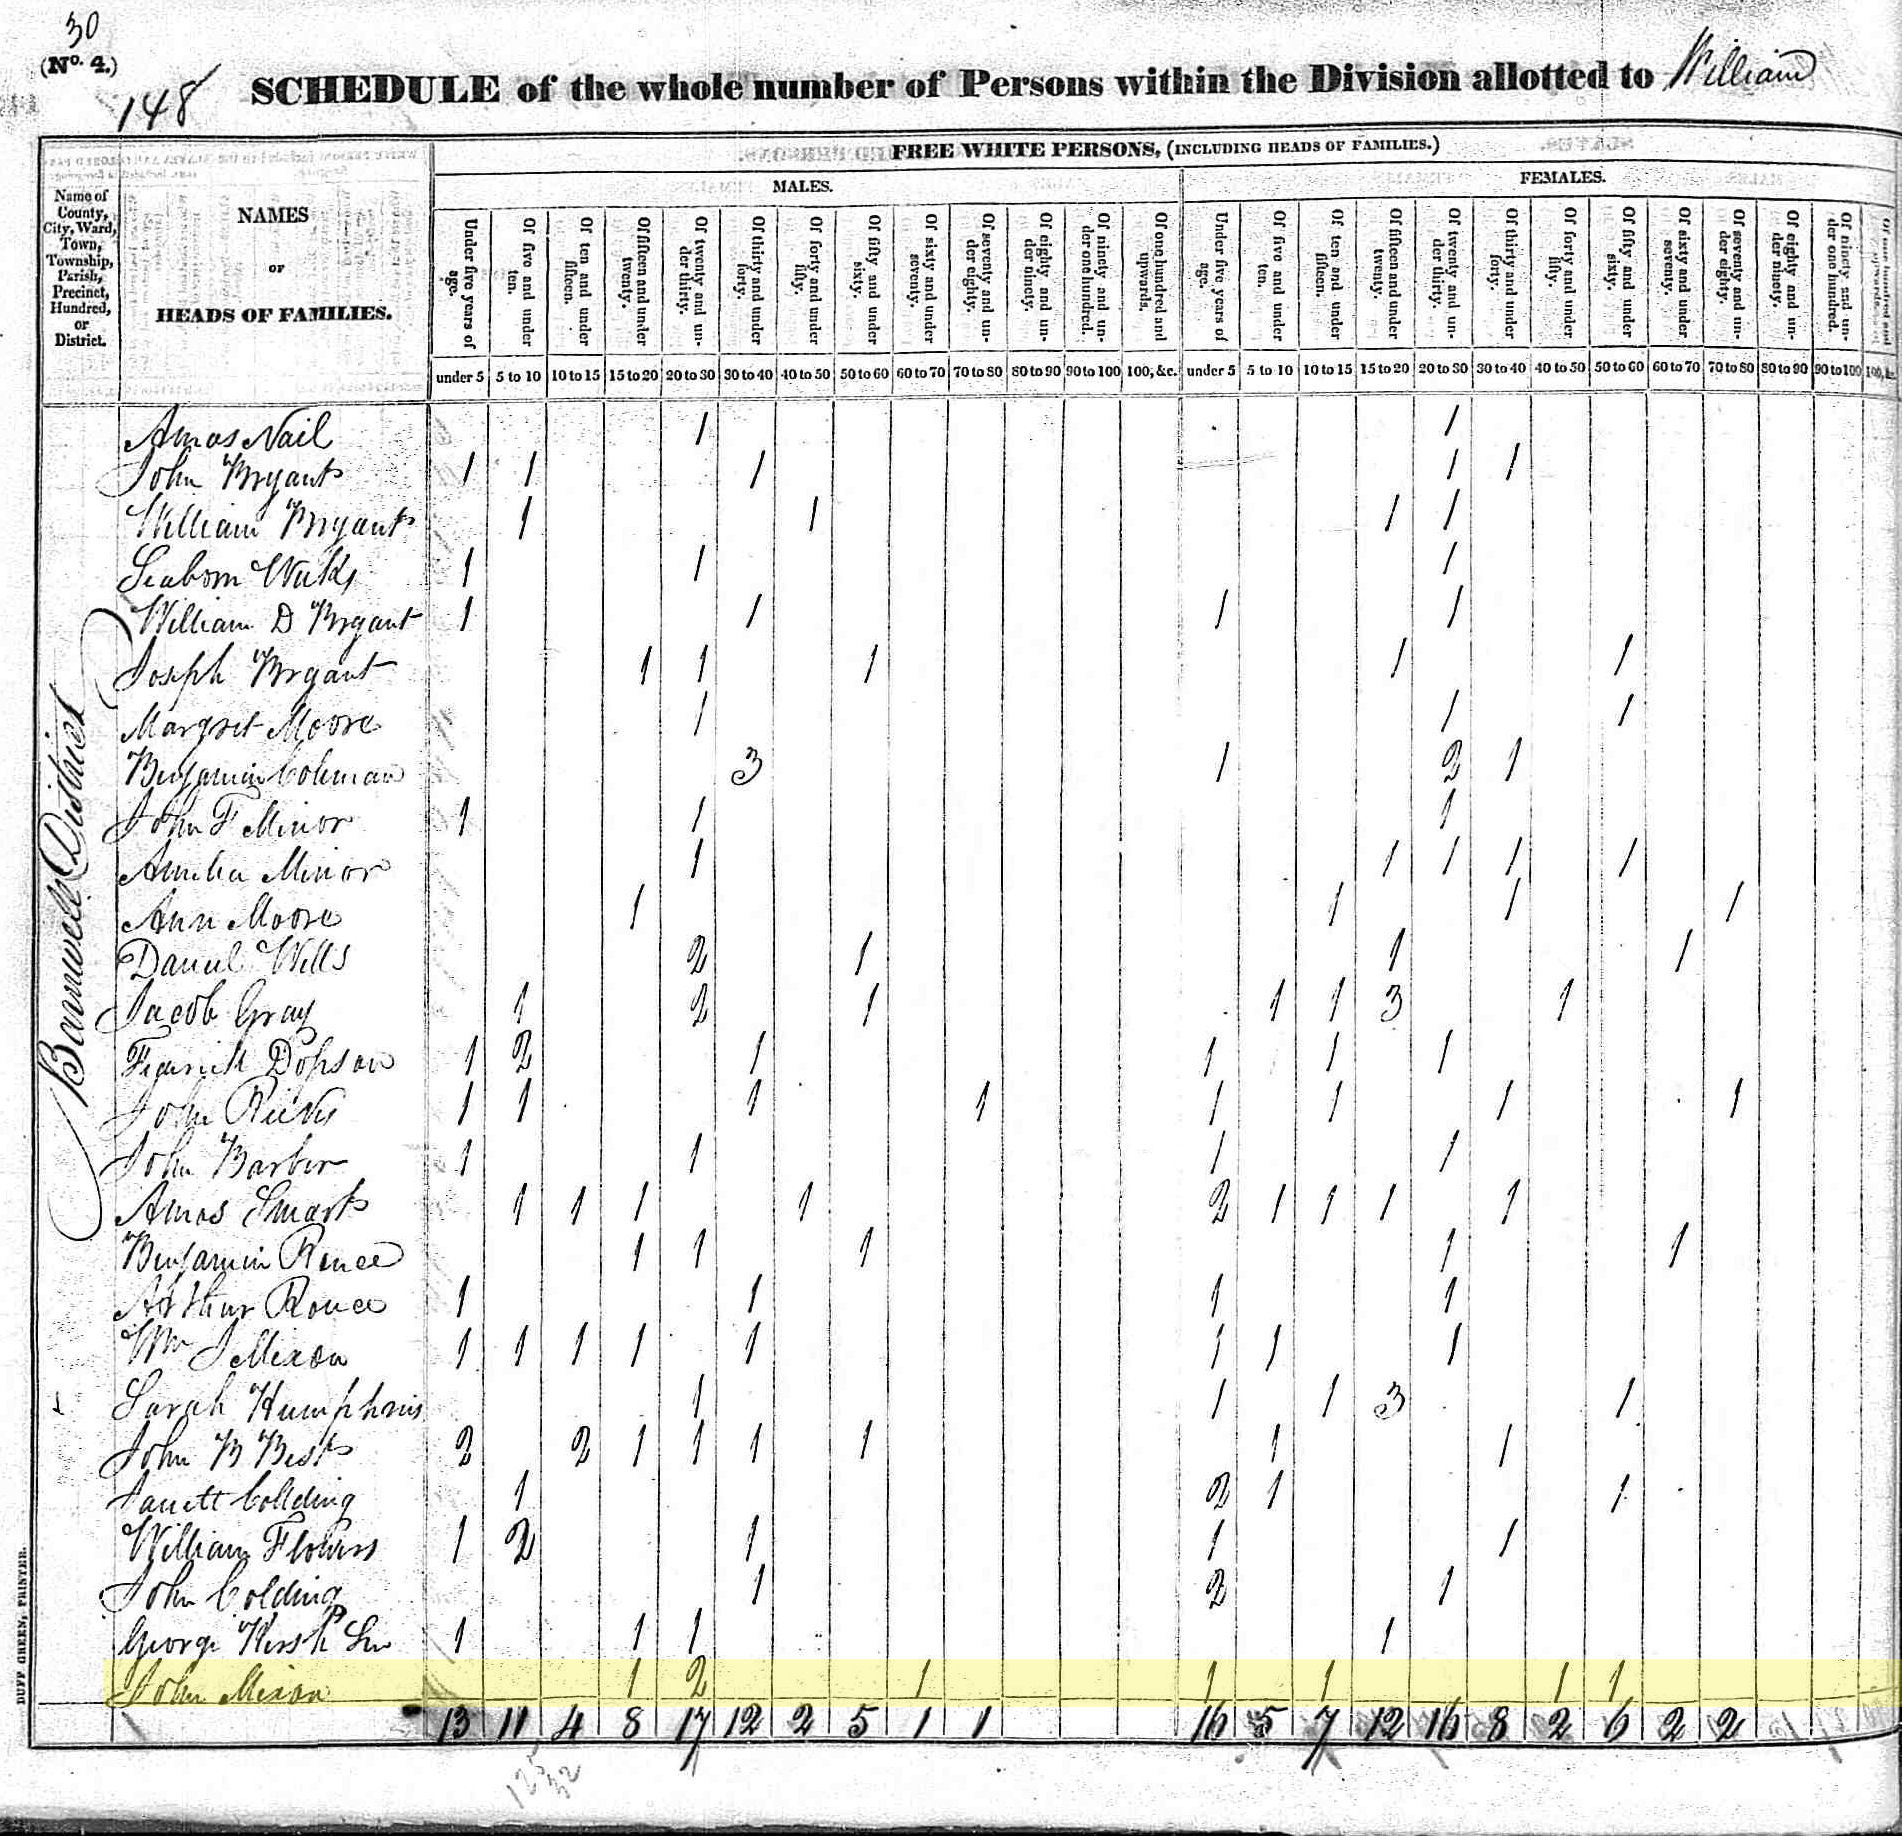 30
(No. 4.)
148
SCHEDULE of the whole number of Persons within the Division allotted to William
FREE WHITE PERSONS, (INCLUDING HEADS OF FAMILIES.)
MALES. FEMALES.
Name of County, City, Ward, Town, Township, Parish, Precinct, Hundred, or District.
NAMES
OF
HEADS OF FAMILIES.
Under five years of age.
Of five and under ten.
Of ten and under fifteen.
Of fifteen and under twenty.
Of twenty and under thirty.
Of thirty and under forty.
Of forty and under fifty.
Of fifty and under sixty.
Of sixty and under seventy.
Of seventy and under eighty.
Of eighty and under ninety.
Of ninety and under one hundred.
Of one hundred and upwards.
Under five years of age.
Of five and under ten.
Of ten and under fifteen.
Of fifteen and under twenty.
Of twenty and under thirty.
Of thirty and under forty.
Of forty and under fifty.
Of fifty and under sixty.
Of sixty and under seventy.
Of seventy and under eighty.
Of eighty and under ninety.
Of ninety and under one hundred.
Of one hundred and upwards.
under 5 5 to 10 10 to 15 15 to 20 20 to 30 30 to 40 40 to 50 50 to 60 60 to 70 70 to 80 80 to 90 90 to 100 100, &c. under 5 5 to 10 10 to 15 15 to 20 20 to 30 30 to 40 40 to 50 50 to 60 60 to 70 70 to 80 80 to 90 90 to 100 100, &c
Barnwell District
Amos Nail 1 1
John Bryant 1 1 1 1 1
William Bryant 1 1 1 1
Seaborn 1 1 1
William D Bryant 1 1 1 1
Joseph Bryant 1 1 1 1 1
Margret Moore 1 1 1
Benjamin Coleman 3 1 2 1
John F Minor 1 1 1
Amelia Minor 1 1 1 1 1
Ann Moore 1 1 1 1
Daniel Wells 2 1 1 1
Jacob Gray 1 2 1 1 1 3 1
Dopson 1 2 1 1 1 1
John 1 1 1 1 1 1 1 1
John Barber 1 1 1 1
Amos Smart 1 1 1 1 2 1 1 1 1
Benjamin Rouce 1 1 1 1 1
Arthur Rouce 1 1 1 1
Wm J Mixon 1 1 1 1 1 1 1 1
Sarah Humphries 1 1 1 3 1
John B Best 2 2 1 1 1 1 1 1
Collding 1 2 1 1
William Flowers 1 2 1 1 1
John Colding 1 2 1
George Kirsh 1 1 1 1
John Mixon 1 2 1 1 1 1 1
13 11 4 8 17 12 2 5 1 1 16 5 7 12 16 8 2 6 2 2
125
32
DUFF GREEN, PRINTER.